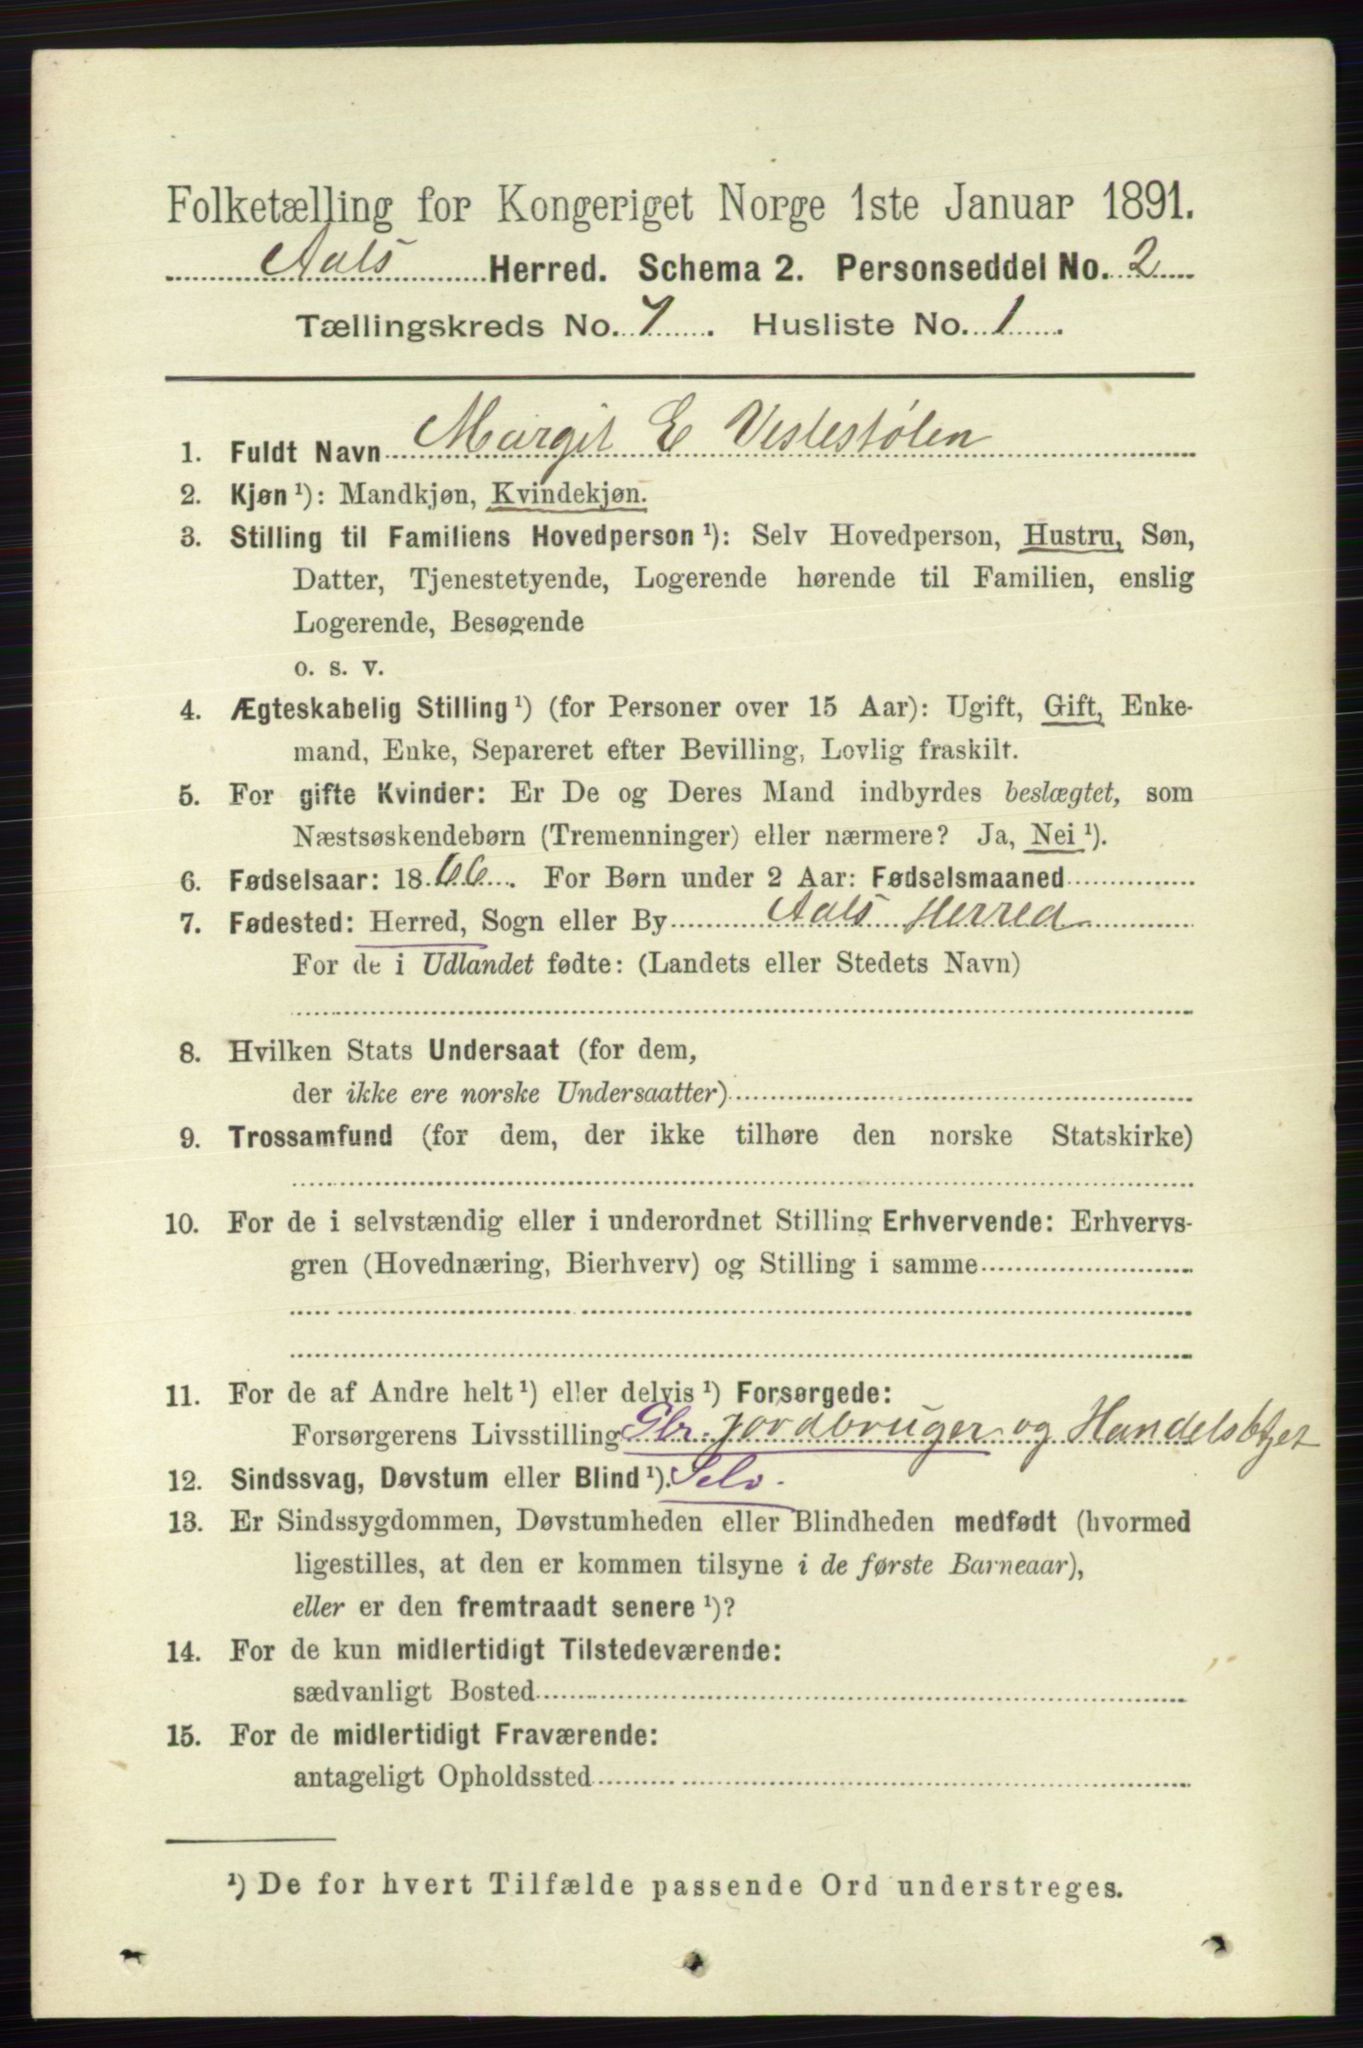 Folketælling for Kongeriget Norge 1ste Januar 1891.
Aals Herred. Schema 2. Personseddel No. 2
Tællingskreds No. 7. Husliste No. 1.
1. Fuldt Navn Margit E Veslestølen
2. Kjøn ¹): Mandkjøn, Kvindekjøn.
3. Stilling til Familiens Hovedperson ¹): Selv Hovedperson, Hustru, Søn,
Datter, Tjenestetyende, Logerende hørende til Familien, enslig
Logerende, Besøgende
o. s. v.
4. Ægteskabelig Stilling ¹) (for Personer over 15 Aar): Ugift, Gift, Enke-
mand, Enke, Separeret efter Bevilling, Lovlig fraskilt.
5. For gifte Kvinder: Er De og Deres Mand indbyrdes beslægtet, som
Næstsøskendebørn (Tremenninger) eller nærmere? Ja, Nei ¹).
6. Fødselsaar: 1866. For Børn under 2 Aar: Fødselsmaaned
7. Fødested: Herred, Sogn eller By Aals Herred
For de i Udlandet fødte: (Landets eller Stedets Navn)
8. Hvilken Stats Undersaat (for dem,
der ikke ere norske Undersaatter)
9. Trossamfund (for dem, der ikke tilhøre den norske Statskirke)
10. For de i selvstændig eller i underordnet Stilling Erhvervende: Erhvervs-
gren (Hovednæring, Bierhverv) og Stilling i samme
11. For de af Andre helt ¹) eller delvis ¹) Forsørgede:
Forsørgerens Livsstilling Gbr. jordbruger og Handelsbtjet
12. Sindssvag, Døvstum eller Blind ¹). Selv.
13. Er Sindssygdommen, Døvstumheden eller Blindheden medfødt (hvormed
ligestilles, at den er kommen tilsyne i de første Barneaar),
eller er den fremtraadt senere ¹)?
14. For de kun midlertidigt Tilstedeværende:
sædvanligt Bosted
15. For de midlertidigt Fraværende:
antageligt Opholdssted
¹) De for hvert Tilfælde passende Ord understreges.